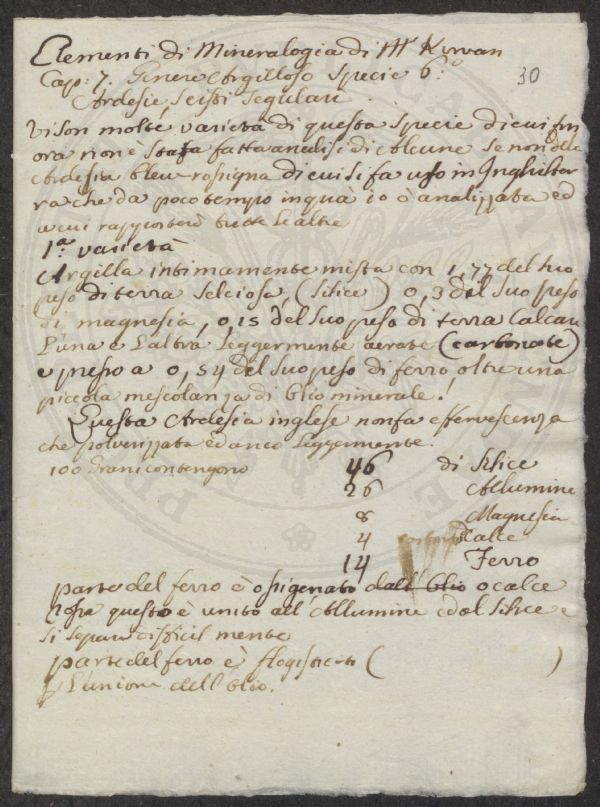 Elementi di Mineralogia di Mr Kirvan
30
Cap: 7. Genere Argilloso Specie 6.o
Ardesie, Scisti Tegulari.
Vi son molte varietà di questa Specie di cui fin
ora non è stata fatta analisi di Alcune se non della
Ardesia bleu rossigna di cui si fa uso in Inghilter
ra che da poco tempo in quà io ò analizzata ed
a cui rapporterò tutte le altre
1.a varietà
Argilla intimamente mista con 1,77 del suo
peso di terra Selciosa, (Silice) 0,3 del Suo peso
di magnesia, 0,15 del Suo peso di terra Calcare
L'una e L'altra Leggermente aerate (carbonate)
e presso a 0,54 del Suo peso di ferro, oltre una
piccola mescolanza di Olio minerale.
Questa Ardesia inglese non fa effervescenza
che polverizzata ed anco Leggermente.
100 Grani contengono 46 di Silice
26 Allumine
8 Magnesia
4 Calce
14 Ferro
parte del ferro è ossigenato dall' Olio o calce
questo è unito all' Allumine e del Silice e
si separa difficilmente
parte del ferro è ( )
L'unione dell' Olio.